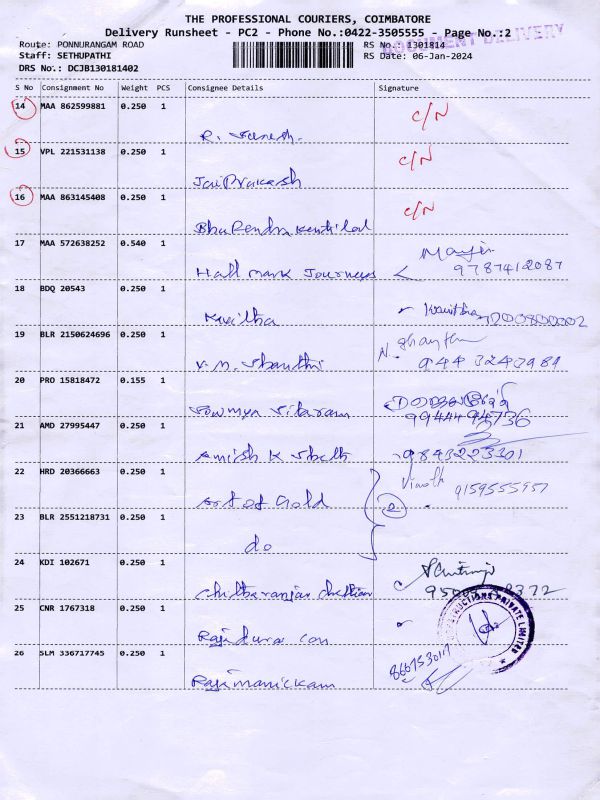 THE PROFESSIONAL COURIERS, COIMBATORE
Delivery Runsheet - PC2 - Phone No.:0422-3505555 - Page No.:2
DOCUMENT DELIVERY
Route: PONNURANGAM ROAD RS No.: 1301814
Staff: SETHUPATHI RS Date: 06-Jan-2024
DRS No.: DCJB130181402
S No Consignment No Weight PCS Consignee Details Signature
14 MAA 862599881 0.250 1 C/N
R. Suresh.
15 VPL 221531138 0.250 1 C/N
Jai Prakash
16 MAA 863145408 0.250 1 C/N
17 MAA 572638252 0.540 1
Hall mark Journeys 9787412087
18 BDQ 20543 0.250 1
Kavitha Kavitha
19 BLR 2150624696 0.250 1
V. M. Shanthi 944 3243989
20 PRO 15818472 0.155 1
Sowmya Sitaram 9944494736
21 AMD 27995447 0.250 1
Amish K Sheth 9843223301
22 HRD 20366663 0.250 1
Art of Gold 2 9159555957
23 BLR 2551218731 0.250 1
do
24 KDI 102671 0.250 1
Chittaranjan Chettiar
25 CNR 1767318 0.250 1 PRIVATE LIMITED
26 SLM 336717745 0.250 1
Rajimanickam